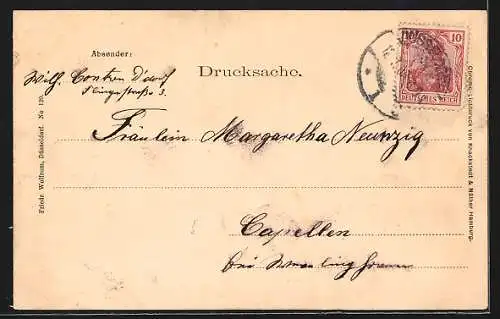 Absender:
Wilh. Contzen D'dorf
Drucksache.
10
DEUTSCHES REICH
Fräulein Margaretha Neunzig
Capellen
bei
Friedr. Wolfrum, Düsseldorf. No 120.
Chromo-Lichtdruck von Knackstedt & Näther Hamburg.